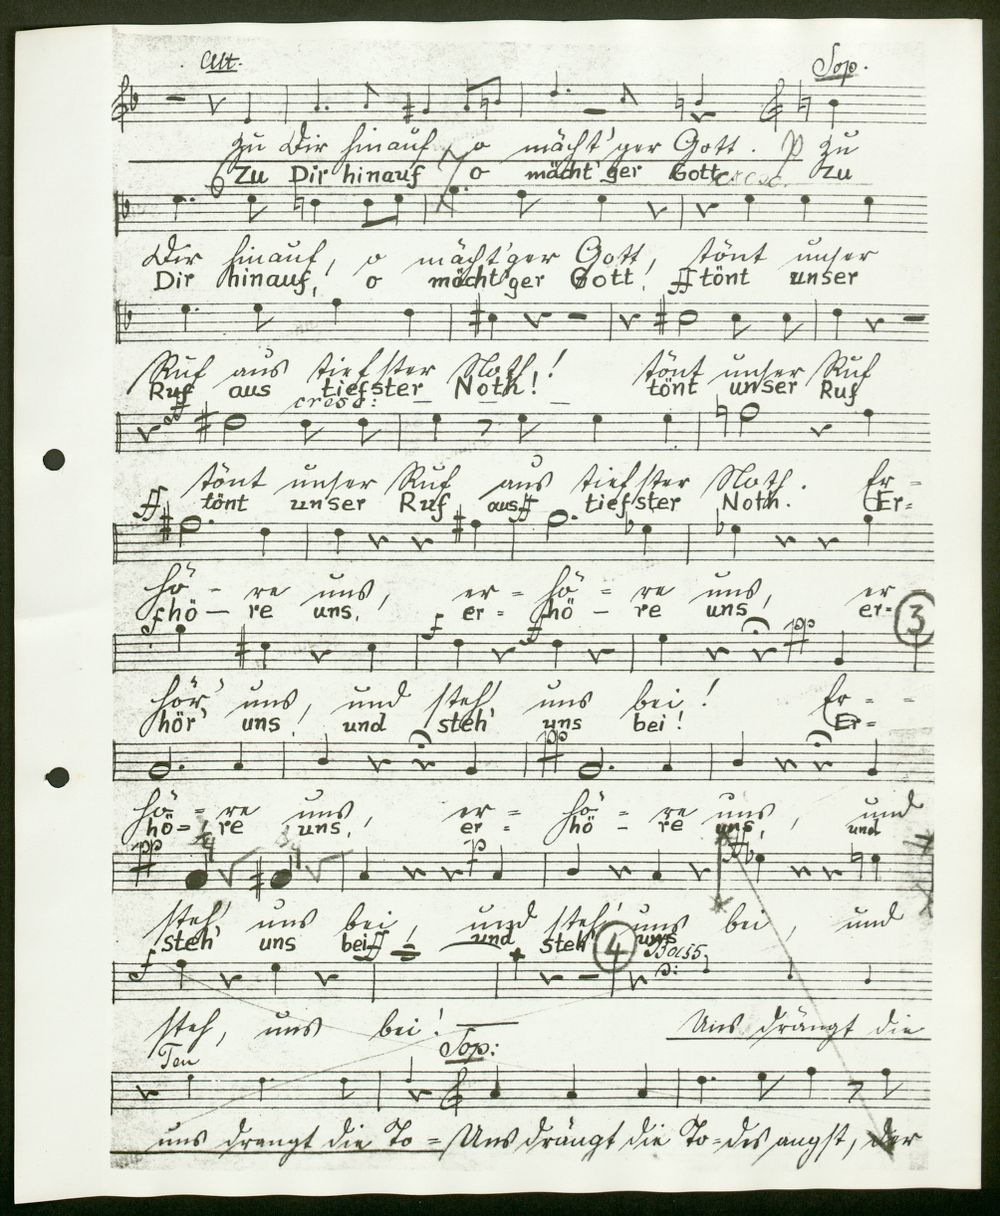 Alt. Sop.
zu Dir hinauf, o mächt'ger Gott. P zu
Zu Dir hinauf o mächt'ger Gott cresc. Zu
Dir hinauf, o mächt'ger Gott, tönt unser
Dir hinauf, o mächt'ger Gott, ff tönt unser
Ruf aus tiefster Noth! tönt unser Ruf
Ruf aus tiefster Noth! tönt unser Ruf
ff cresc:
tönt unser Ruf aus tiefster Noth. Er=
ff tönt unser Ruf aus ff tiefster Noth. Er=
hö - re uns, er = hö = re uns, er
f hö — re uns, er = hö — re uns, er= 3
f f pp
hör' uns, und steh' uns bei! Er=
hör' uns, und steh' uns bei! Er=
pp
hö = re uns, er = hö = re uns, und
hö = re uns, er = hö — re uns, und
pp p
steh' uns bei, und steh' uns bei, und
steh' uns bei ff und steh' 4 uns
f Bass.
steh, uns bei! Uns drängt die
Ten Sop:
uns drangt die To = Uns drängt die To-des angst, der